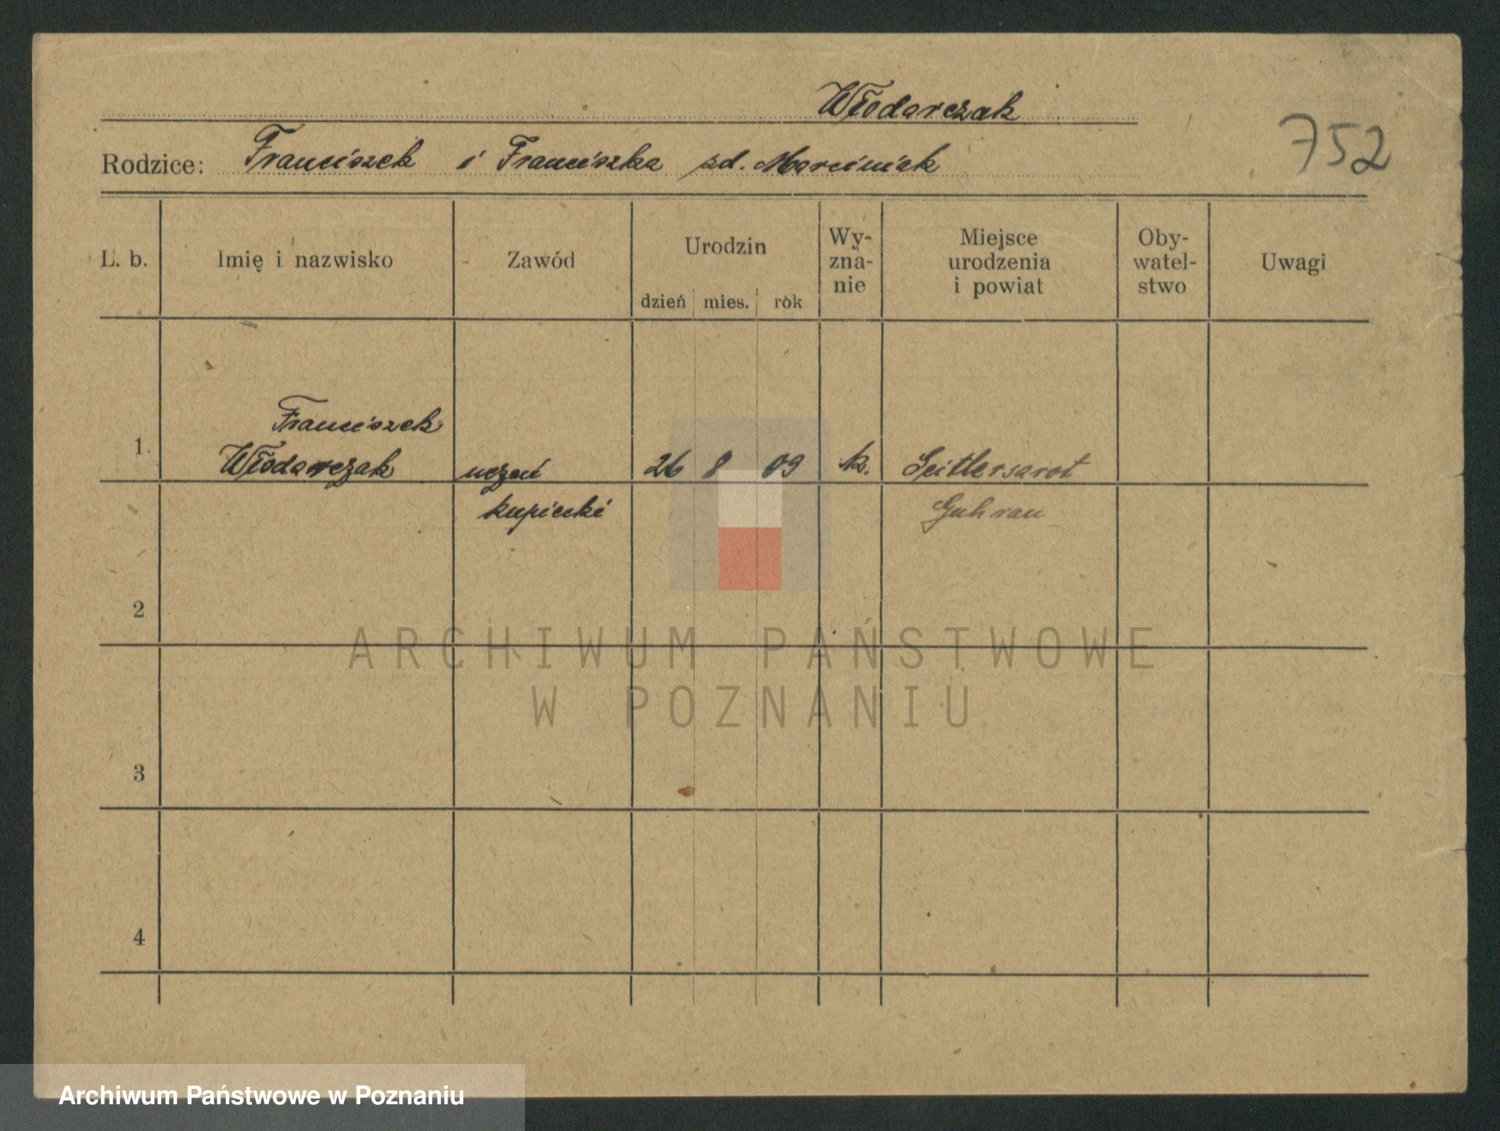 Włodarczak
752
Rodzice: Franciszek i Franciszka zd. Marciniak
L. b.
Imię i nazwisko
Zawód
Urodzin
dzień mies. rok
Wy-
zna-
nie
Miejsce
urodzenia
i powiat
Oby-
watel-
stwo
Uwagi
1.
Franciszek
Włodarczak
uczeń
kupiecki
26 8 09
k.
Guhrau
2
3
4
ARCHIWUM PAŃSTWOWE
W POZNANIU
Archiwum Państwowe w Poznaniu